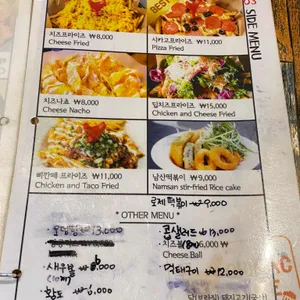 03 SIDE MENU
BES
치즈프라이즈 ₩8,000
Cheese Fried
시카고프라이즈 ₩11,000
Pizza Fried
치즈나쵸 ₩8,000
Cheese Nacho
칠치즈프라이즈 ₩15,000
Chicken and Cheese Fried
삐깐떼 프라이즈 ₩11,000
Chicken and Taco Fried
남산떡볶이 ₩9,000
Namsan stir-fried Rice cake
로제 떡볶이 ₩9,000
* OTHER MENU *
13,000
· 콥샐러드 ₩13,000
· 치즈볼 (8개) 6,000 ₩
Cheese.Ball
· 새우볼
· 먹태구이 ₩12,000
· 황도